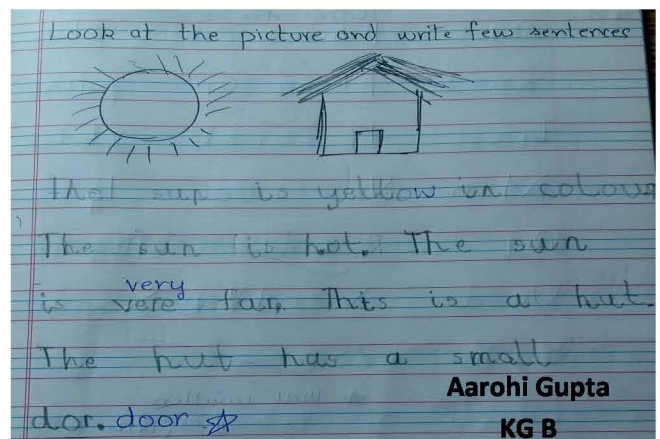 Look at the picture and write few sentences
The sun is yellow in colour
The sun is hot. The sun
very
is vere far. This is a hut.
The hut has a small
Aarohi Gupta
dor. door
KG B